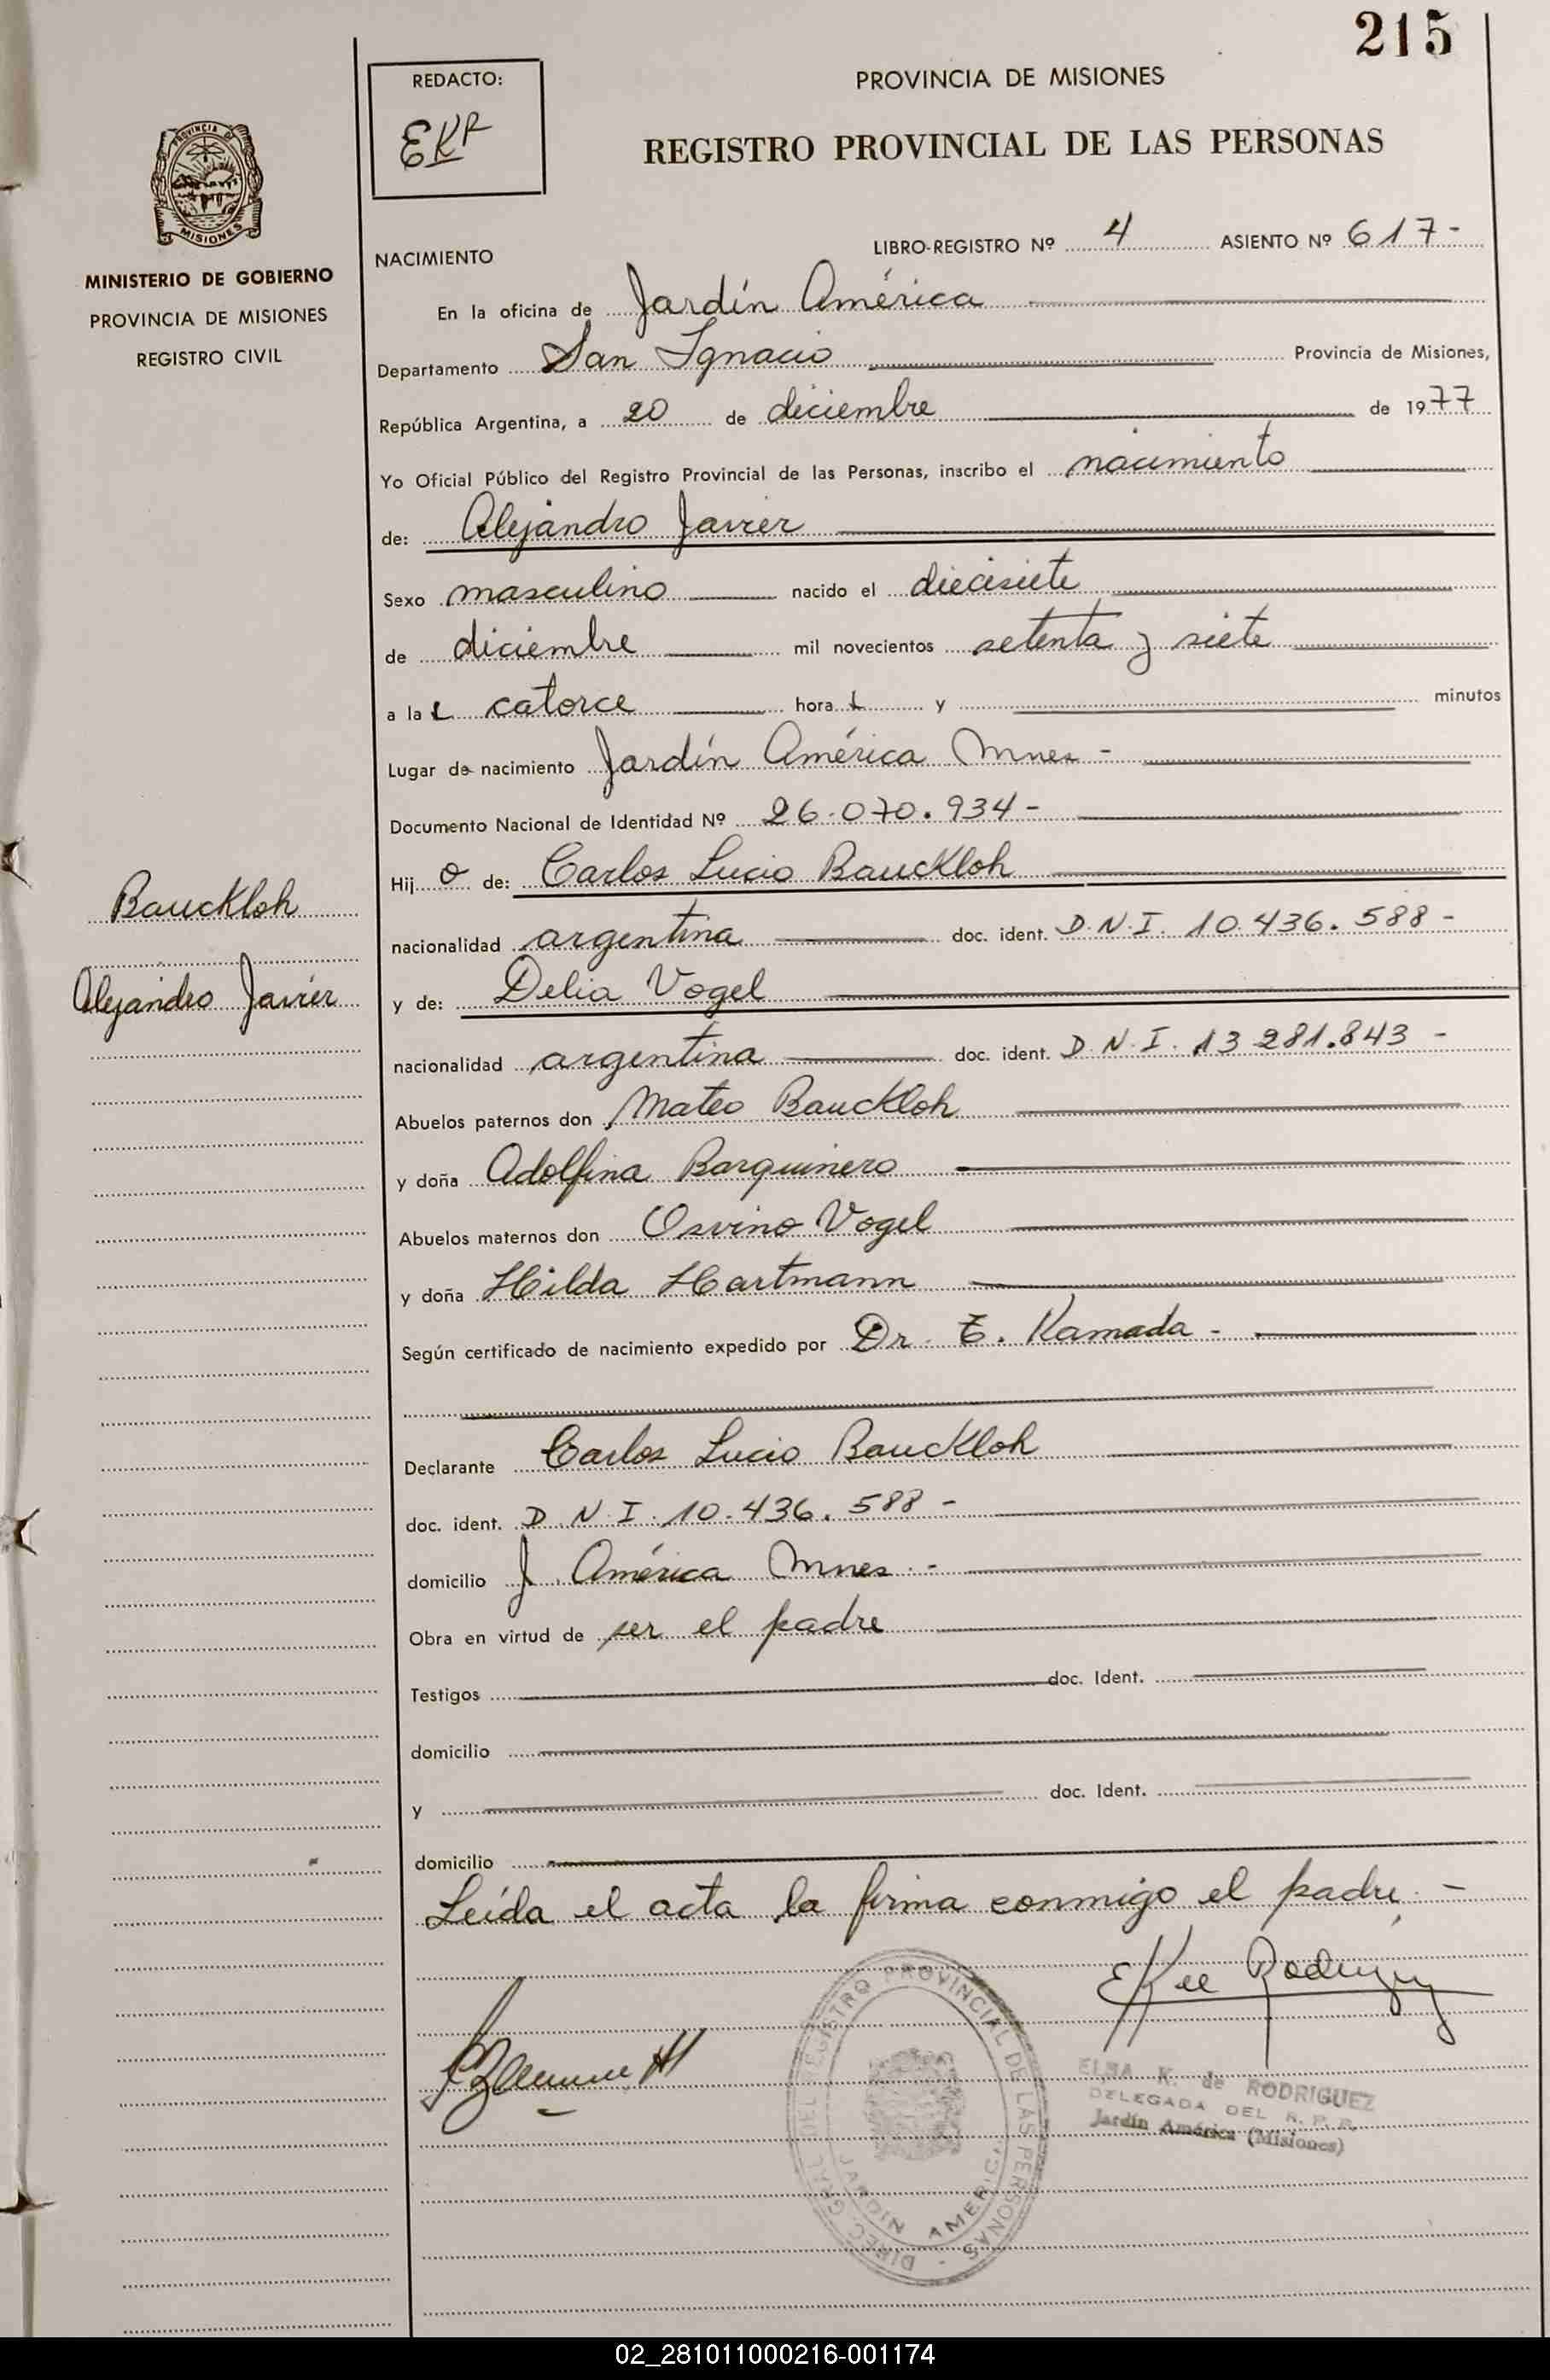 215
REDACTO:
EKR
PROVINCIA DE MISIONES
REGISTRO PROVINCIAL DE LAS PERSONAS
PROVINCIA DE
MISIONES
MINISTERIO DE GOBIERNO
PROVINCIA DE MISIONES
REGISTRO CIVIL
NACIMIENTO
LIBRO-REGISTRO Nº 4 ASIENTO Nº 617-
En la oficina de Jardín América
Departamento San Ignacio Provincia de Misiones,
República Argentina, a 20 de diciembre de 1977
Yo Oficial Público del Registro Provincial de las Personas, inscribo el nacimiento
de: Alejandro Javier
Sexo masculino nacido el diecisiete
de diciembre mil novecientos setenta y siete
a las catorce horas y minutos
Lugar de nacimiento Jardín América Mnes -
Documento Nacional de Identidad Nº 26.070.934-
Hijo de: Carlos Lucio Bauckloh
Bauckloh
nacionalidad argentina doc. ident. D.N.I. 10.436.588-
Alejandro Javier
y de: Delia Vogel
nacionalidad argentina doc. ident. D.N.I. 13 281.843 -
Abuelos paternos don Mateo Bauckloh
y doña Adolfina Barquinero
Abuelos maternos don Osvino Vogel
y doña Hilda Hartmann
Según certificado de nacimiento expedido por Dr. E. Kamada -
Declarante Carlos Lucio Bauckloh
doc. ident. D.N.I. 10.436.588 -
domicilio J. América Mnes. -
Obra en virtud de ser el padre
Testigos doc. Ident.
domicilio
y doc. Ident.
domicilio
Leída el acta la firma conmigo el padre. -
EKde Rodriguez
DIREC. GRAL. DEL REGISTRO PROVINCIAL DE LAS PERSONAS -
JARDIN AMERICA
ELSA K. de RODRIGUEZ
DELEGADA DEL R. P. P.
Jardín América (Misiones)
02_281011000216-001174